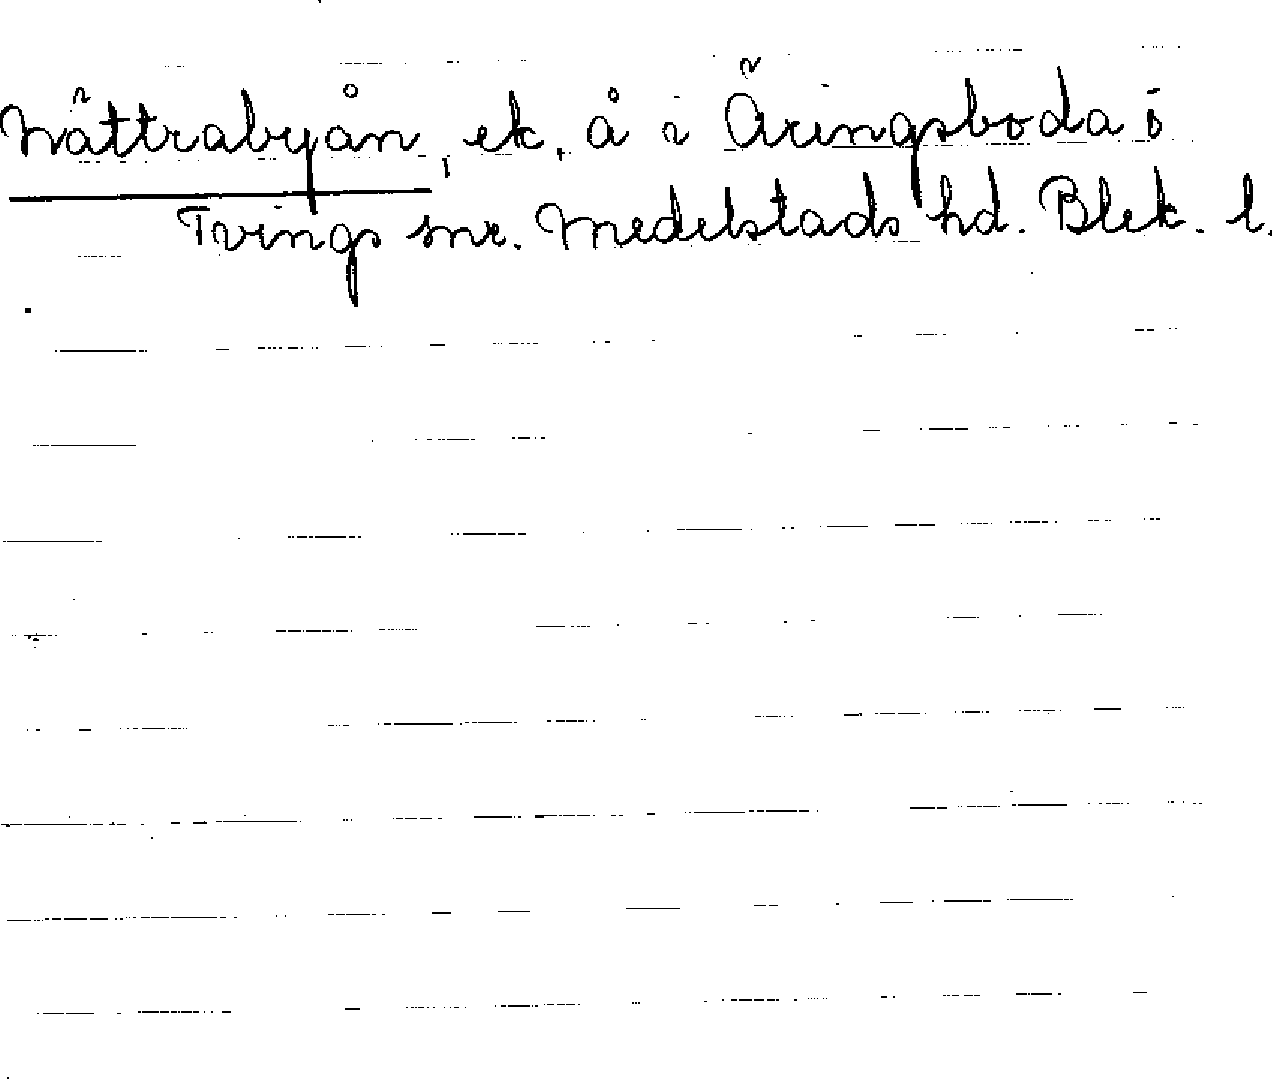 Nättrabyån, ek. å i Äringsboda i
Tvings snr. Medelstads hd. Blek. l.